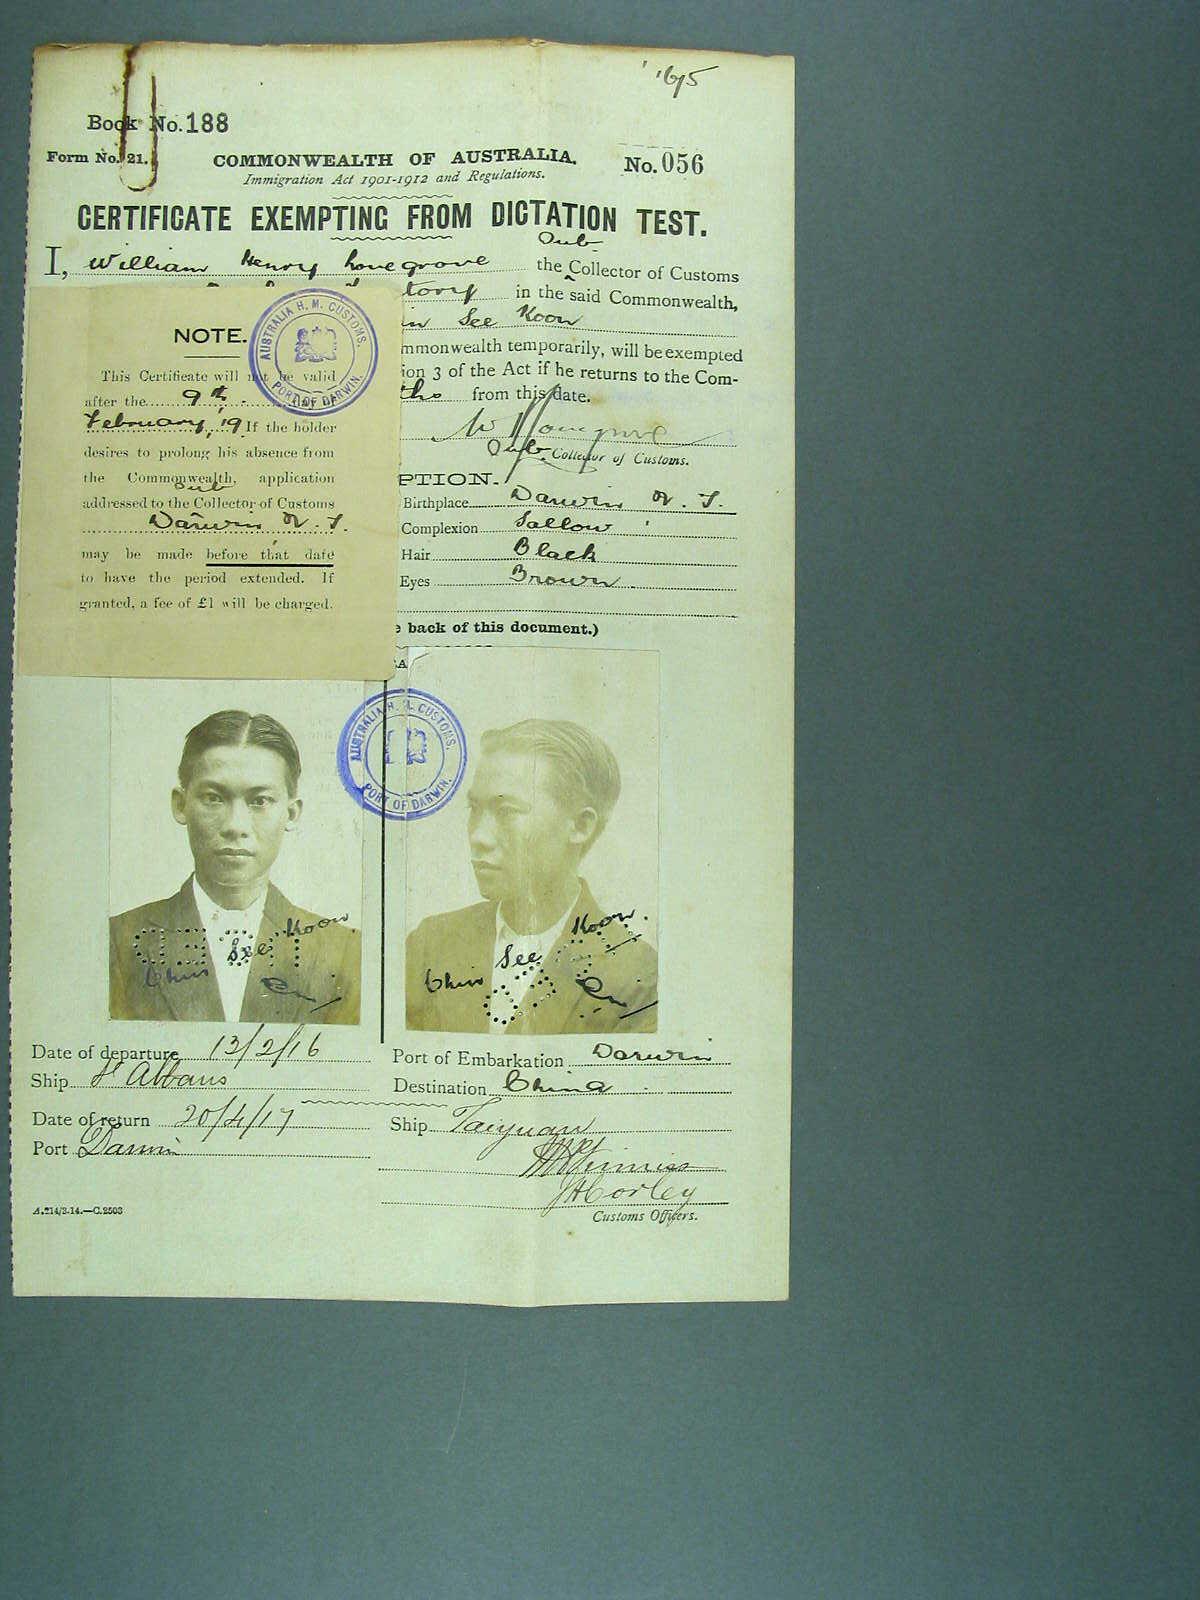 '65
Book No. 188
Form No. 21.
COMMONWEALTH OF AUSTRALIA.
No. 056
Immigration Act 1901-1912 and Regulations.
CERTIFICATE EXEMPTING FROM DICTATION TEST.
Sub
I, William Henry Lovegrove the Collector of Customs
tory in the said Commonwealth,
in See Koon
mmonwealth temporarily, will be exempted
ion 3 of the Act if he returns to the Com-
ths from this date.
Sub. Collector of Customs.
PTION.
Birthplace Darwin N. T.
Complexion Sallow
Hair Black
Eyes Brown
e back of this document.)
NOTE.
AUSTRALIA H. M. CUSTOMS.
PORT OF DARWIN.
This Certificate will not be valid
after the 9th day of
February, 19 If the holder
desires to prolong his absence from
the Commonwealth, application
Sub
addressed to the Collector of Customs
Darwin N. T.
may be made before that date
to have the period extended. If
granted, a fee of £1 will be charged.
AUSTRALIA H. M. CUSTOMS.
PORT OF DARWIN.
Chin See Koon
Chin See Koon.
Date of departure 13/2/16
Port of Embarkation Darwin
Ship St Albans
Destination China
Date of return 20/4/17
Ship Taiyuan
Port Darwin
JHCorley
A.214/3.14.—C.2503
Customs Officers.